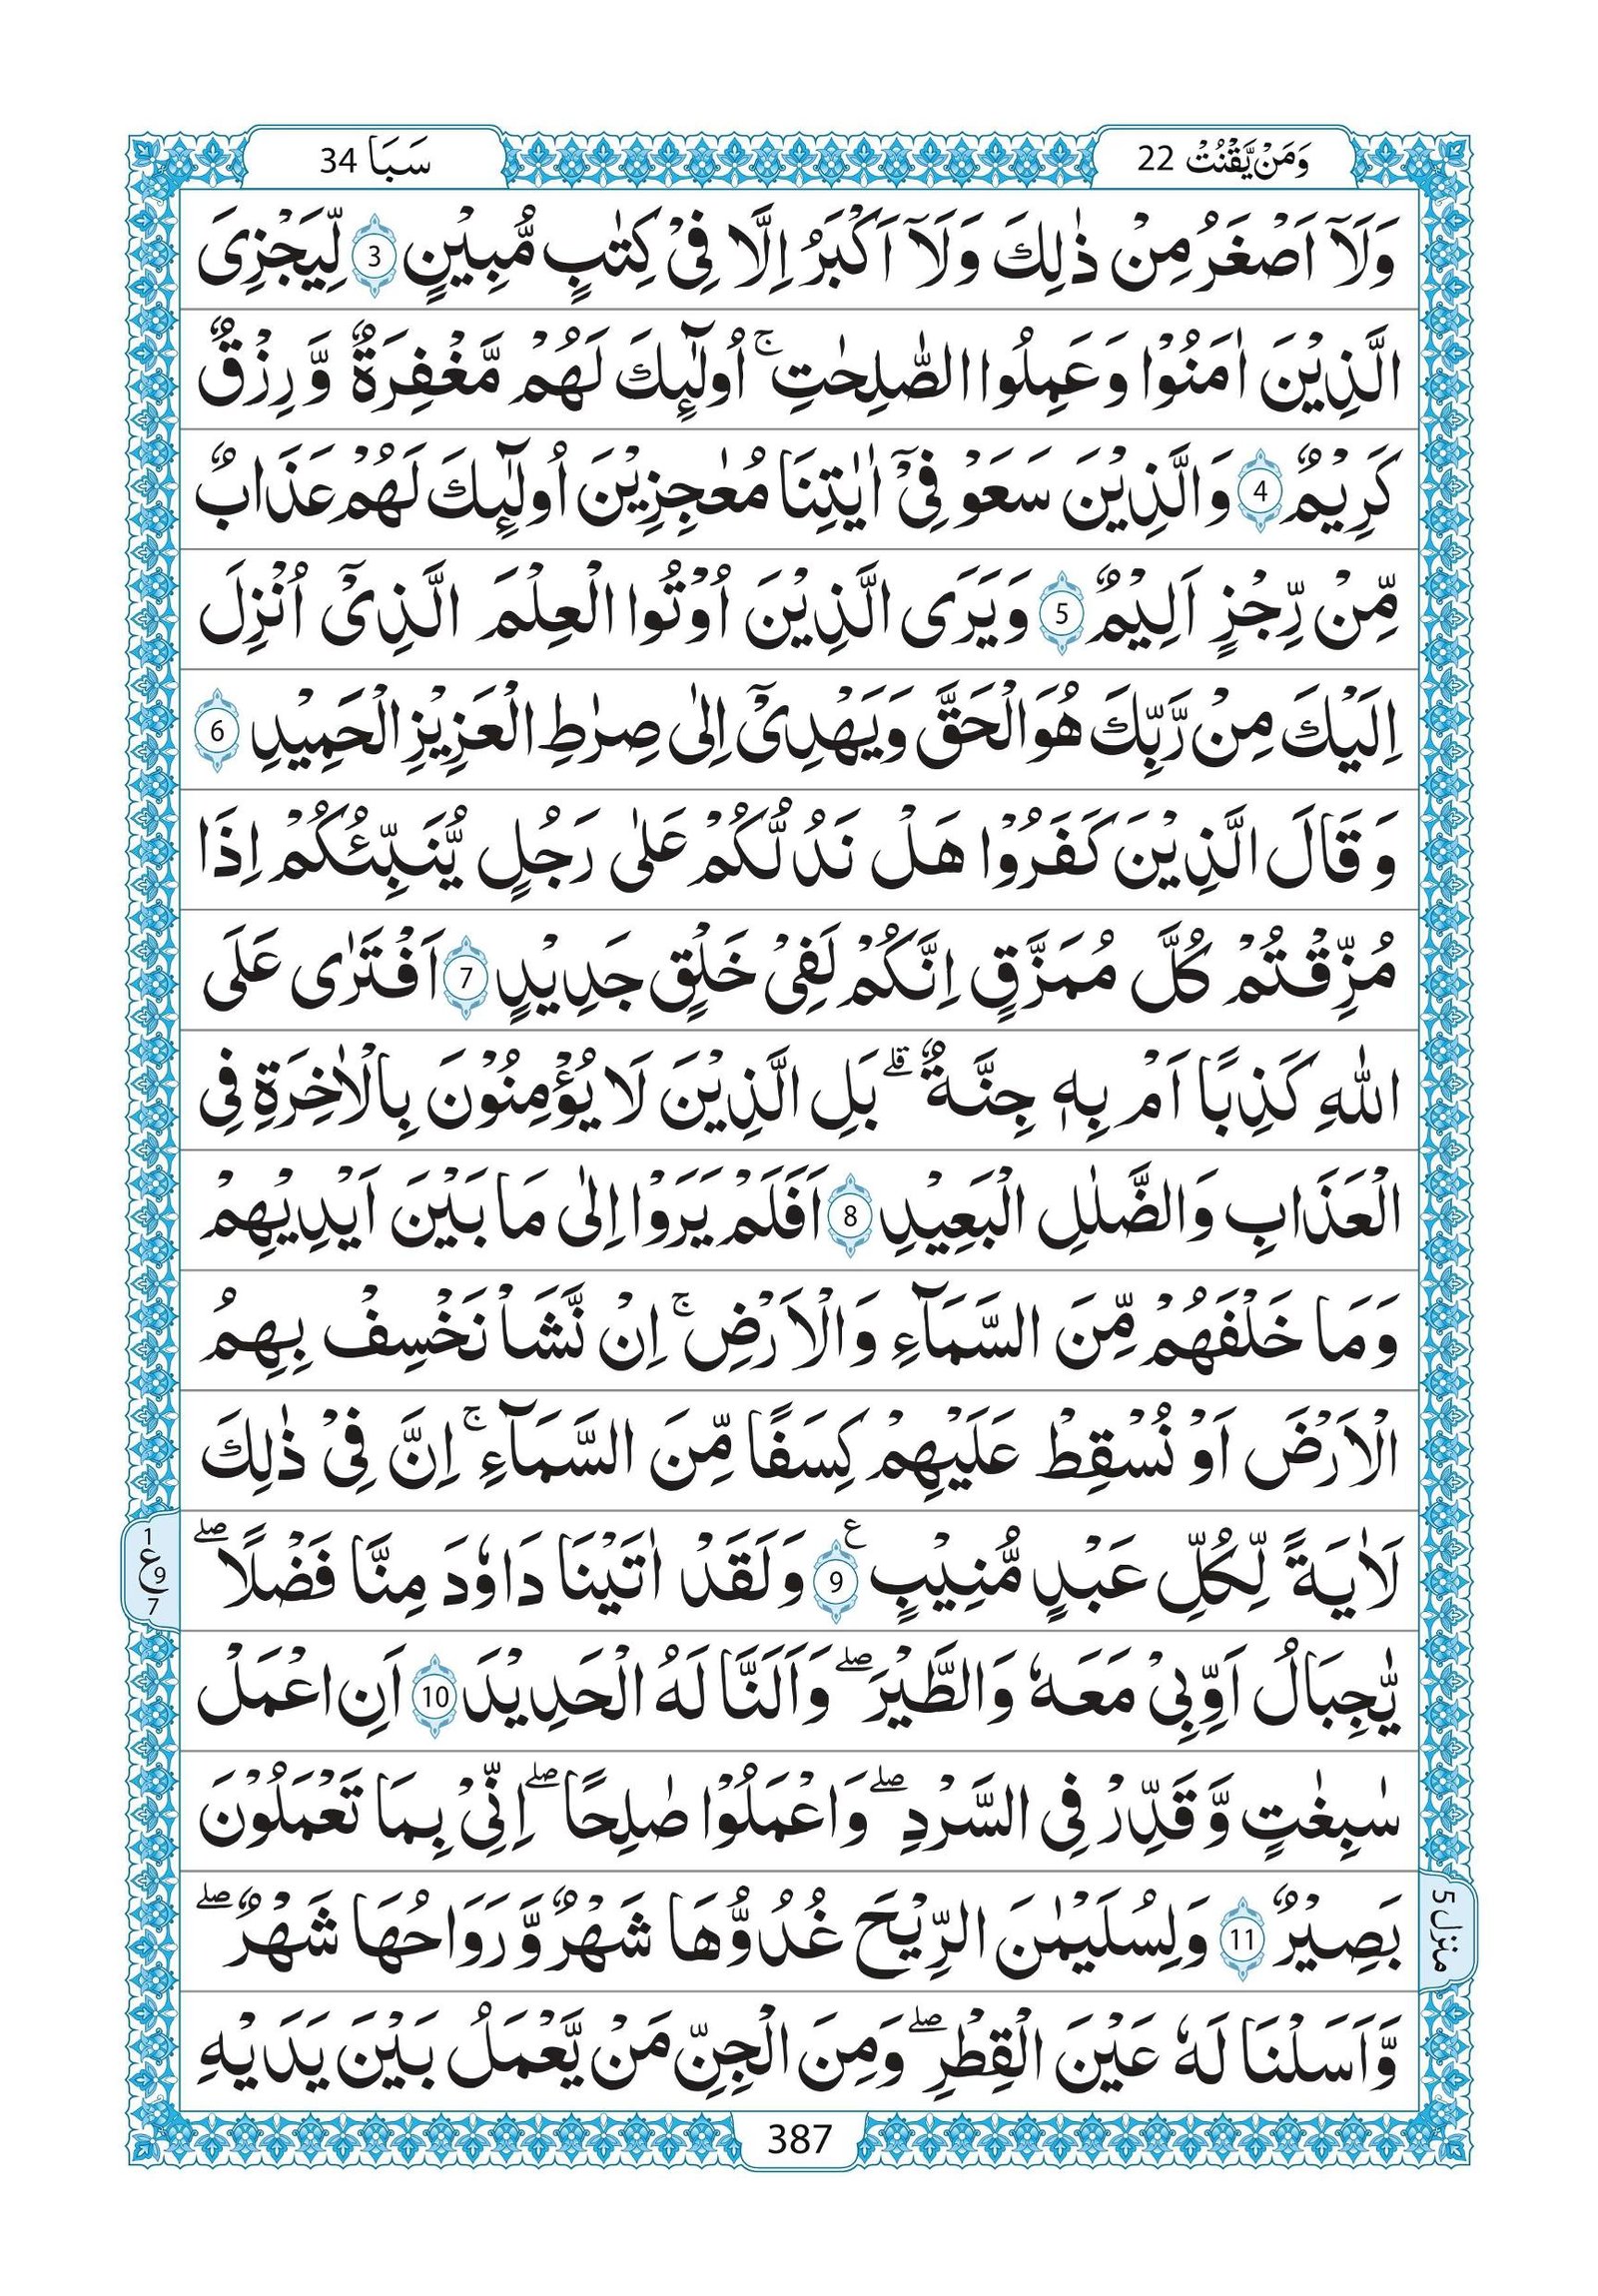 وَمَنْ يَّقْنُتْ 22
سَبَا 34
وَلَآ اَصْغَرُ مِنْ ذٰلِكَ وَلَآ اَكْبَرُ اِلَّا فِىْ كِتٰبٍ مُّبِيْنٍ 3 لِّيَجْزِىَ
الَّذِيْنَ اٰمَنُوْا وَعَمِلُوا الصّٰلِحٰتِ ۚ اُولٰٓئِكَ لَهُمْ مَّغْفِرَةٌ وَّرِزْقٌ
كَرِيْمٌ 4 وَالَّذِيْنَ سَعَوْ فِىْٓ اٰيٰتِنَا مُعٰجِزِيْنَ اُولٰٓئِكَ لَهُمْ عَذَابٌ
مِّنْ رِّجْزٍ اَلِيْمٌ 5 وَيَرَى الَّذِيْنَ اُوْتُوا الْعِلْمَ الَّذِىْٓ اُنْزِلَ
اِلَيْكَ مِنْ رَّبِّكَ هُوَ الْحَقَّ وَيَهْدِىْٓ اِلٰى صِرٰطِ الْعَزِيْزِ الْحَمِيْدِ 6
وَقَالَ الَّذِيْنَ كَفَرُوْا هَلْ نَدُلُّكُمْ عَلٰى رَجُلٍ يُّنَبِّئُكُمْ اِذَا
مُزِّقْتُمْ كُلَّ مُمَزَّقٍ اِنَّكُمْ لَفِىْ خَلْقٍ جَدِيْدٍ 7 اَفْتَرٰى عَلَى
اللّٰهِ كَذِبًا اَمْ بِهٖ جِنَّةٌ ۗ بَلِ الَّذِيْنَ لَا يُؤْمِنُوْنَ بِالْاٰخِرَةِ فِى
الْعَذَابِ وَالضَّلٰلِ الْبَعِيْدِ 8 اَفَلَمْ يَرَوْا اِلٰى مَا بَيْنَ اَيْدِيْهِمْ
وَمَا خَلْفَهُمْ مِّنَ السَّمَآءِ وَالْاَرْضِ ۚ اِنْ نَّشَاْ نَخْسِفْ بِهِمُ
الْاَرْضَ اَوْ نُسْقِطْ عَلَيْهِمْ كِسَفًا مِّنَ السَّمَآءِ ۚ اِنَّ فِىْ ذٰلِكَ
لَاٰيَةً لِّكُلِّ عَبْدٍ مُّنِيْبٍ 9 ع وَلَقَدْ اٰتَيْنَا دَاوٗدَ مِنَّا فَضْلًا ۖ
1
ع 9
7
يٰجِبَالُ اَوِّبِىْ مَعَهٗ وَالطَّيْرَ ۖ وَاَلَنَّا لَهُ الْحَدِيْدَ 10 اَنِ اعْمَلْ
سٰبِغٰتٍ وَّقَدِّرْ فِى السَّرْدِ ۖ وَاعْمَلُوْا صٰلِحًا ۖ اِنِّىْ بِمَا تَعْمَلُوْنَ
بَصِيْرٌ 11 وَلِسُلَيْمٰنَ الرِّيْحَ غُدُوُّهَا شَهْرٌ وَّرَوَاحُهَا شَهْرٌ ۖ
منزل 5
وَّاَسَلْنَا لَهٗ عَيْنَ الْقِطْرِ ۖ وَمِنَ الْجِنِّ مَنْ يَّعْمَلُ بَيْنَ يَدَيْهِ
387